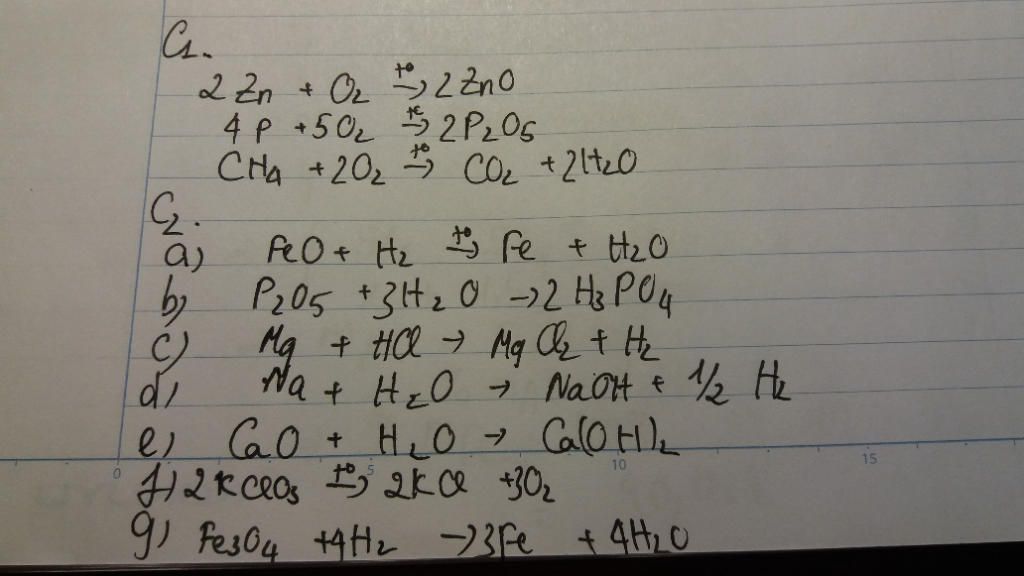 C1.
2 Zn + O2 t°→ 2 ZnO
4 P + 5O2 t°→ 2P2O5
CH4 + 2O2 t°→ CO2 + 2H2O
C2.
a) FeO + H2 t°→ Fe + H2O
b) P2O5 + 3H2O → 2 H3PO4
c) Mg + HCl → MgCl2 + H2
d) Na + H2O → NaOH + 1/2 H2
e) CaO + H2O → Ca(OH)2
0 5 10 15
f) 2KClO3 t°→ 2KCl + 3O2
g) Fe3O4 + 4H2 → 3Fe + 4H2O